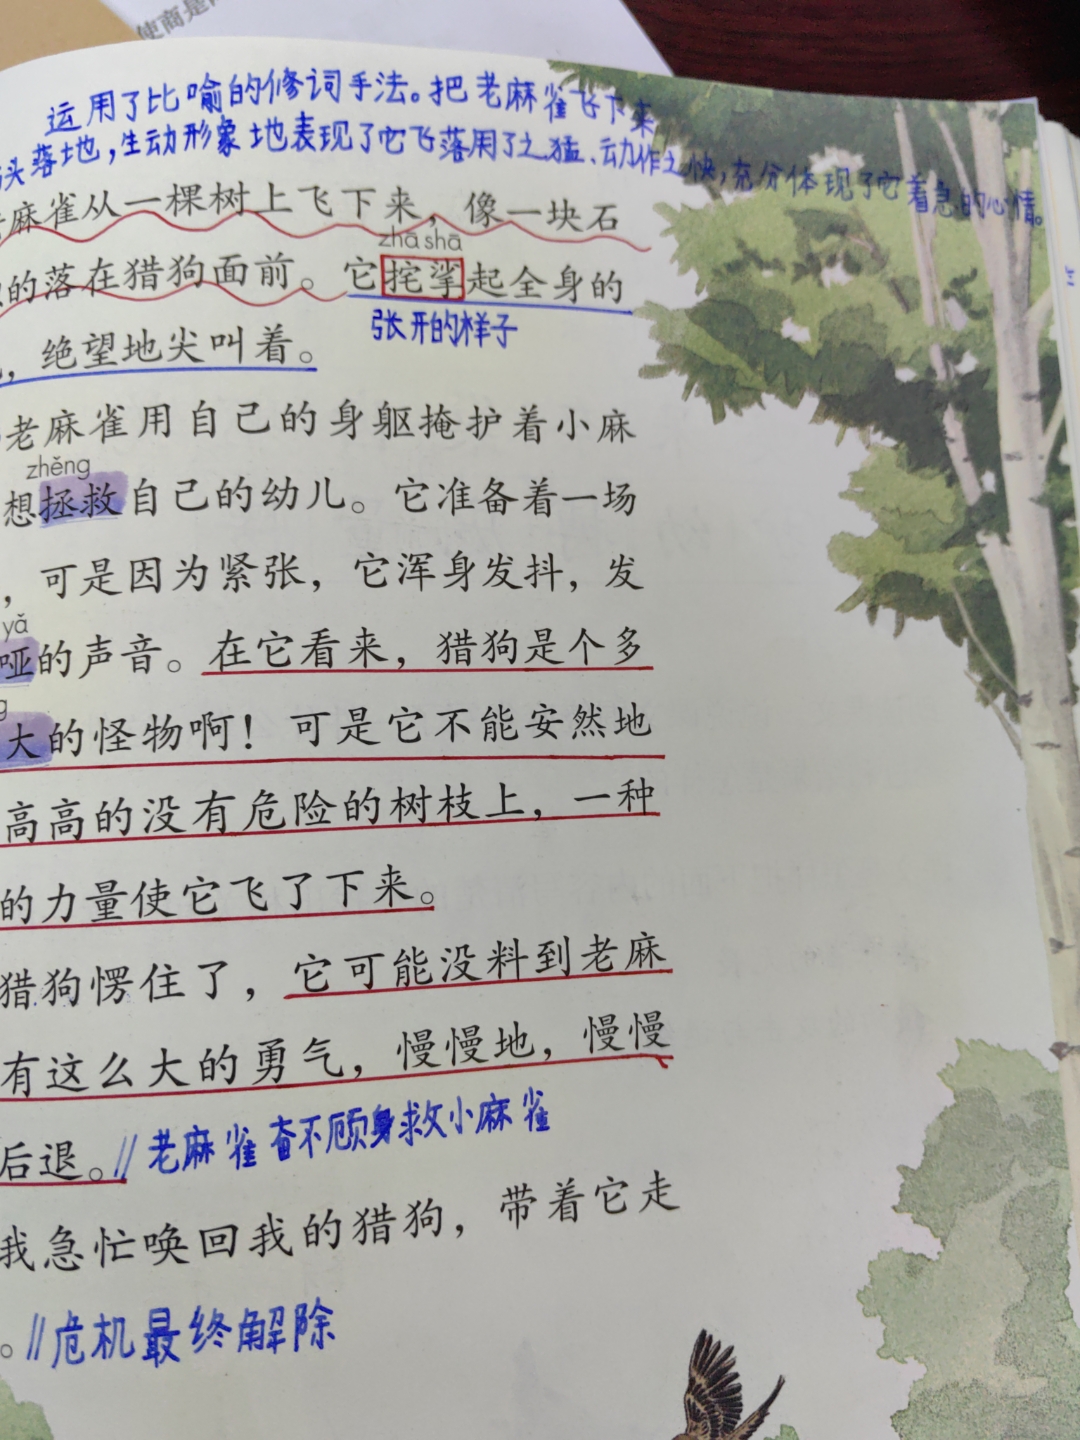 使商是
运用了比喻的修词手法。把老麻雀飞下来
头落地，生动形象地表现了它飞落用了之猛、动作之快，充分体现了它着急的心情。
麻雀从一棵树上飞下来，像一块石
zhā shā
的落在猎狗面前。它挓挲起全身的
张开的样子
，绝望地尖叫着。
老麻雀用自己的身躯掩护着小麻
zhěng
想拯救自己的幼儿。它准备着一场
，可是因为紧张，它浑身发抖，发
yǎ
哑的声音。在它看来，猎狗是个多
g
大的怪物啊！可是它不能安然地
高高的没有危险的树枝上，一种
的力量使它飞了下来。
猎狗愣住了，它可能没料到老麻
有这么大的勇气，慢慢地，慢慢
后退。//老麻雀奋不顾身救小麻雀
我急忙唤回我的猎狗，带着它走
。//危机最终解除